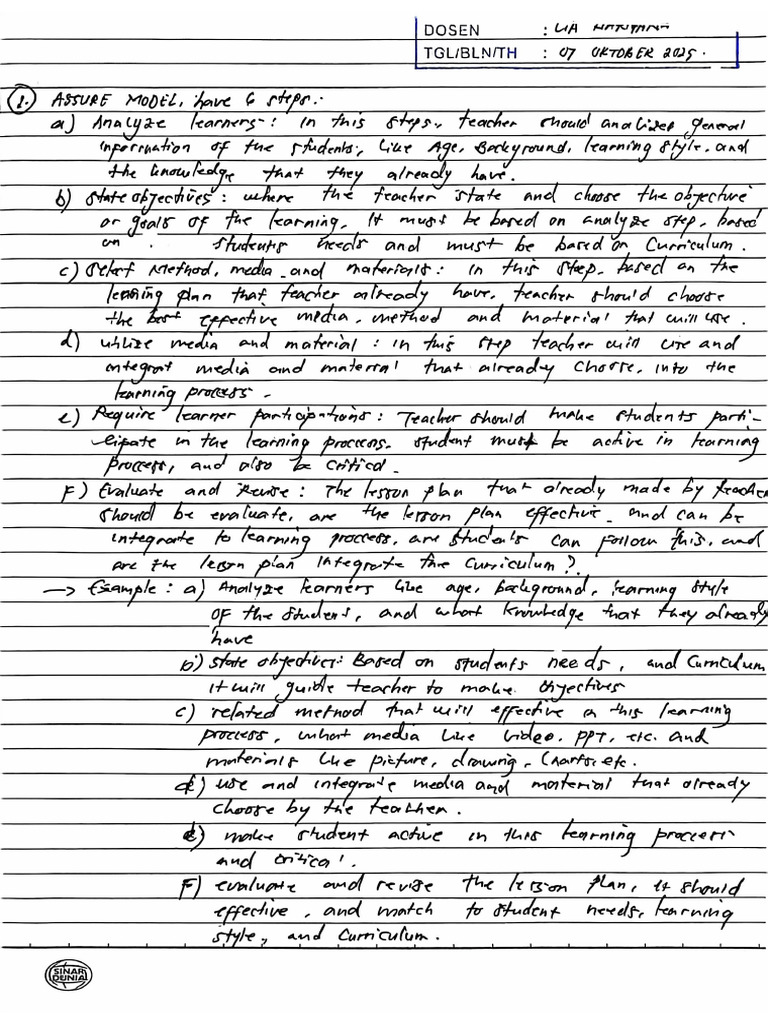 DOSEN : LIA
TGL/BLN/TH : 07 OKTOBER 2025.
1. ASSURE MODEL, have 6 steps:
a) Analyze learners : in this steps, teacher should analizes general
information of the students, like Age, Background, learning style, and
the knowledge that they already have.
b) State objectives : where the teacher state and choose the objective
or goals of the learning. It must be based on analyze step, based
on students needs and must be based on Curriculum.
c) Select Method, media and materials : in this step, based on the
learning plan that teacher already have, teacher should choose
the best effective media, method and material that will use.
d) utilize media and material : in this step teacher will use and
integrat media and material that already choose, into the
learning process.
e) Require learner participations : Teacher should make students parti-
cipate in the learning proccess. student must be active in learning
process, and also be critical.
F) Evaluate and Revise : The lesson plan that already made by teacher
should be evaluate, are the lesson plan effective and can be
integrate to learning proccess, are students can follow this, and
are the lesson plan integrate the curriculum?
→ Example : a) Analyze learners like age, background, learning style
of the student, and what knowledge that they already
have
b) State objectives: Based on students needs, and Curriculum
it will guide teacher to make objectives
c) related method that will effective in this learning
process, what media like video, PPT, etc. and
materials like picture, drawing, Charts, etc.
d) use and integrate media and material that already
choose by the teacher.
e) make student active in this learning process
and critical.
F) evaluate and revise the lesson plan, it should
effective, and match to student needs, learning
style, and Curriculum.
SINAR
DUNIA